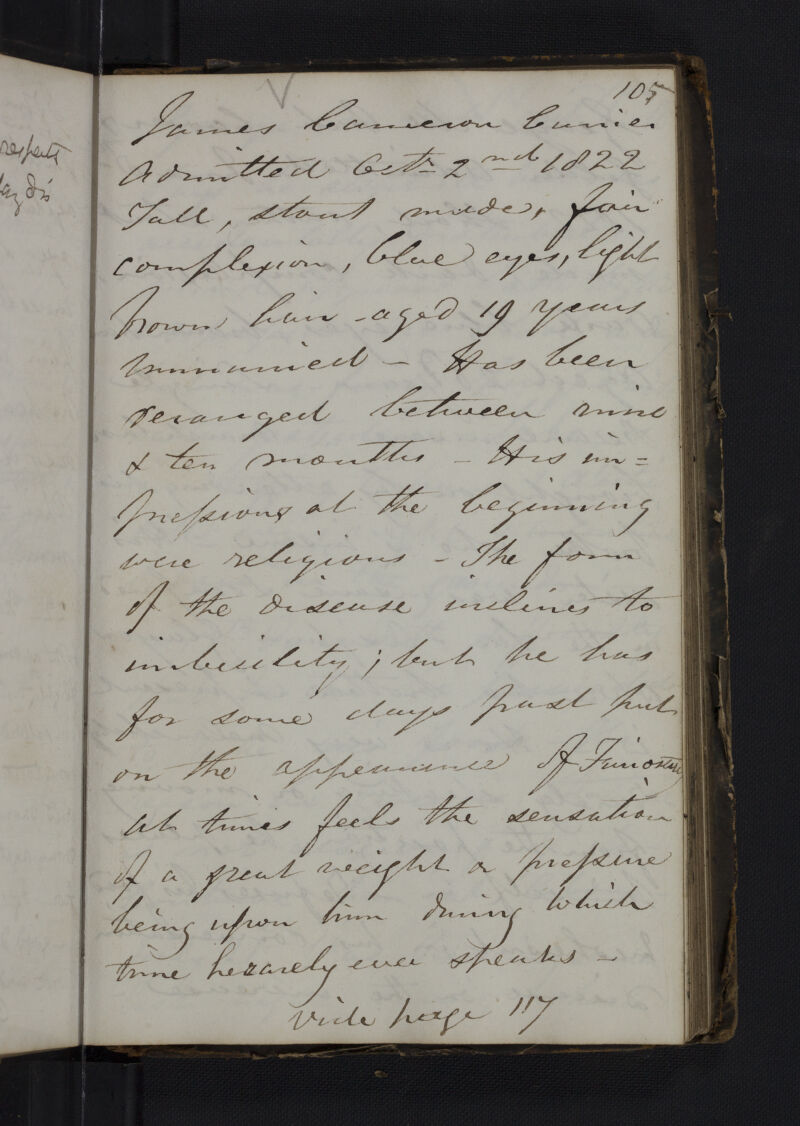 respects
laz dis
105
James Cameron Currier
Admitted Octr 2nd 1822
Tall, stout made, fair
complexion, blue eyes, light
brown hair - aged 19 years
unmarried - Has been
deranged between nine
& ten months - His im=
pressions at the beginning
were religious - The form
of the disease inclines to
imbesility; but he has
for some days past put
on the appearance of Furiosity
at times feels the sensation
of a great weight or pressure
being upon him during which
time he rarely ever speaks -
vide page 117